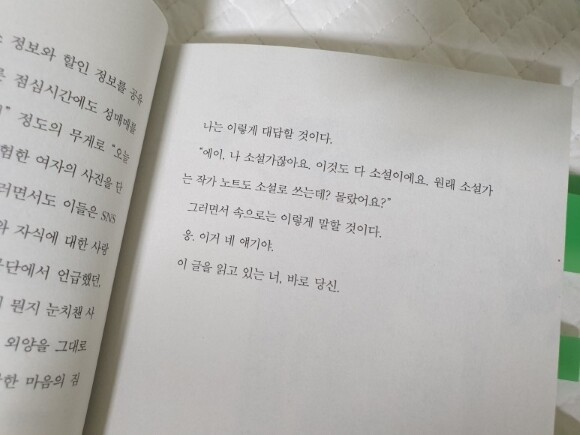 정보와 할인 정보를 공유
점심시간에도 성매매를
정도의 무게로 "오늘
험한 여자의 사진을 단
러면서도 이들은 SNS
자식에 대한 사랑
무단에서 언급했던,
뭔지 눈치챈 사
외양을 그대로
한 마음의 짐
나는 이렇게 대답할 것이다.
"에이, 나 소설가잖아요. 이것도 다 소설이에요. 원래 소설가
는 작가 노트도 소설로 쓰는데? 몰랐어요?"
그러면서 속으로는 이렇게 말할 것이다.
응. 이거 네 얘기야.
이 글을 읽고 있는 너, 바로 당신.